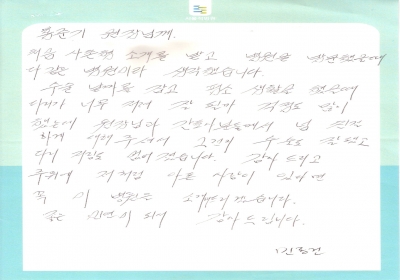 봉준기 원장님께.
처음 사촌형 소개를 받고 병원을 방문했을때
다 같은 병원이라 생각했습니다.
수술 날짜를 잡고 평소 생활을 했을때
다리가 너무 저려 잠 걱정도 많이
했는데 원장님과 간호사분들께서 넘 친절
하게 대해 주셔서 그런지 수술도 잘 되고
다리 저림도 없어 졌습니다. 감사 드리고
주위에 저 처럼 아픈 사람이 있으면
꼭 이 병원을 소개 하겠습니다.
좋은 인연이 되어 감사 드립니다.